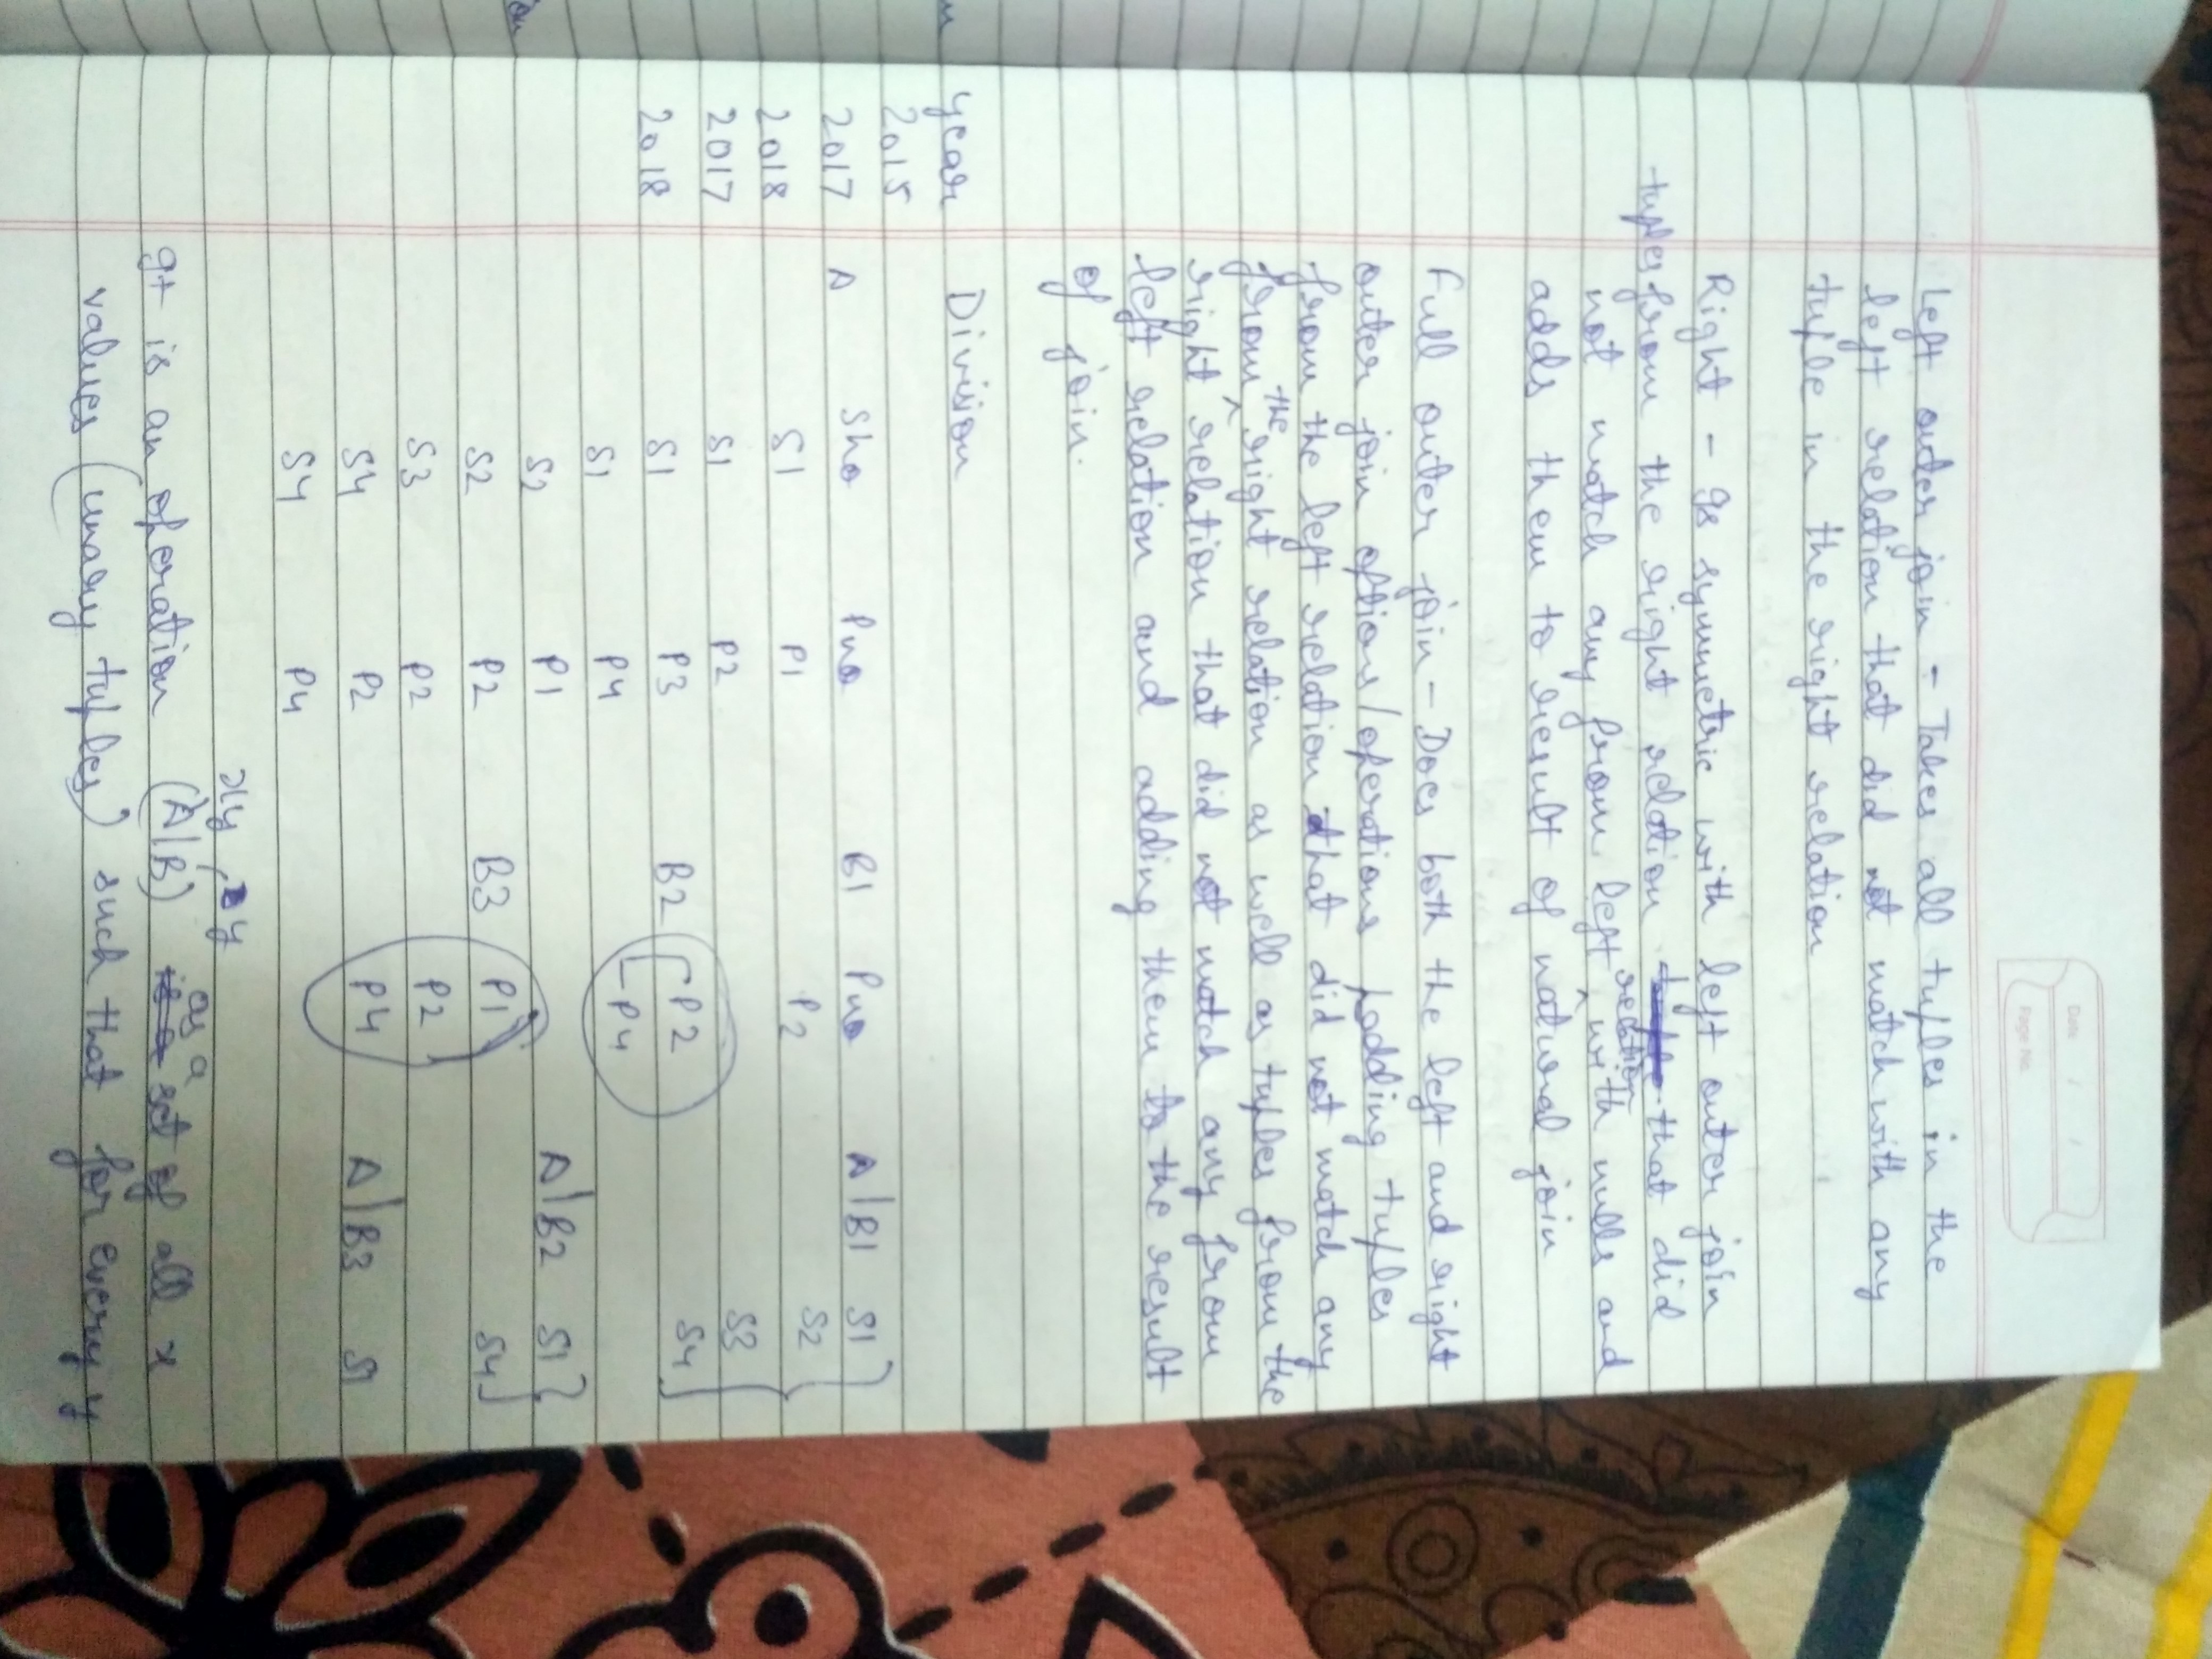 Date / /
Page No.
Left outer join - Takes all tuples in the
left relation that did not match with any
tuple in the right relation
Right - Is symmetric with left outer join
tuples from the right relation that did
not match any from left relation with nulls and
adds them to result of natural join
Full outer join - Does both the left and right
outer join options/operations padding tuples
from the left relation that did not match any
from the right relation as well as tuples from the
right relation that did not match any from
left relation and adding them to the result
of join.
year Division
2015
2017 A Sno Pno B1 Pno A/B1 S1
2018 S1 P1 P2 S2
2017 S1 P2 S3
2018 S1 P3 B2 P2 S4
S1 P4 P4
S2 P1 A/B2 S1
S2 P2 B3 P1 S4
S3 P2 P2
S4 P2 P4 A/B3 S1
S4 P4
xy, y
It is an operation (A/B) as a set of all x
values (unary tuples) such that for every y